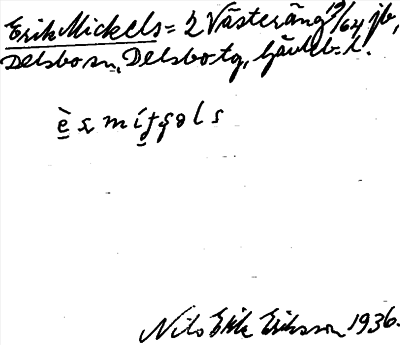 Erik Mickels = 2 Västeräng 19/64 jb,
Delsbo sn, Delsbo tg, Gävleb. l.
è ꞅ m í ƫ ʂ o l s
Nils Erik Eriksson 1936.